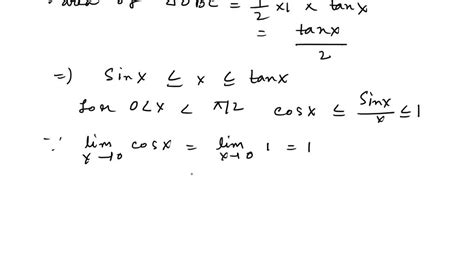 area of △OBC = 1/2 × 1 × tanx
= tanx/2
=) Sinx ≤ x ≤ tanx
for 0<x < π/2 cosx ≤ Sinx/x ≤ 1
∵ lim x→0 cosx = lim x→0 1 = 1